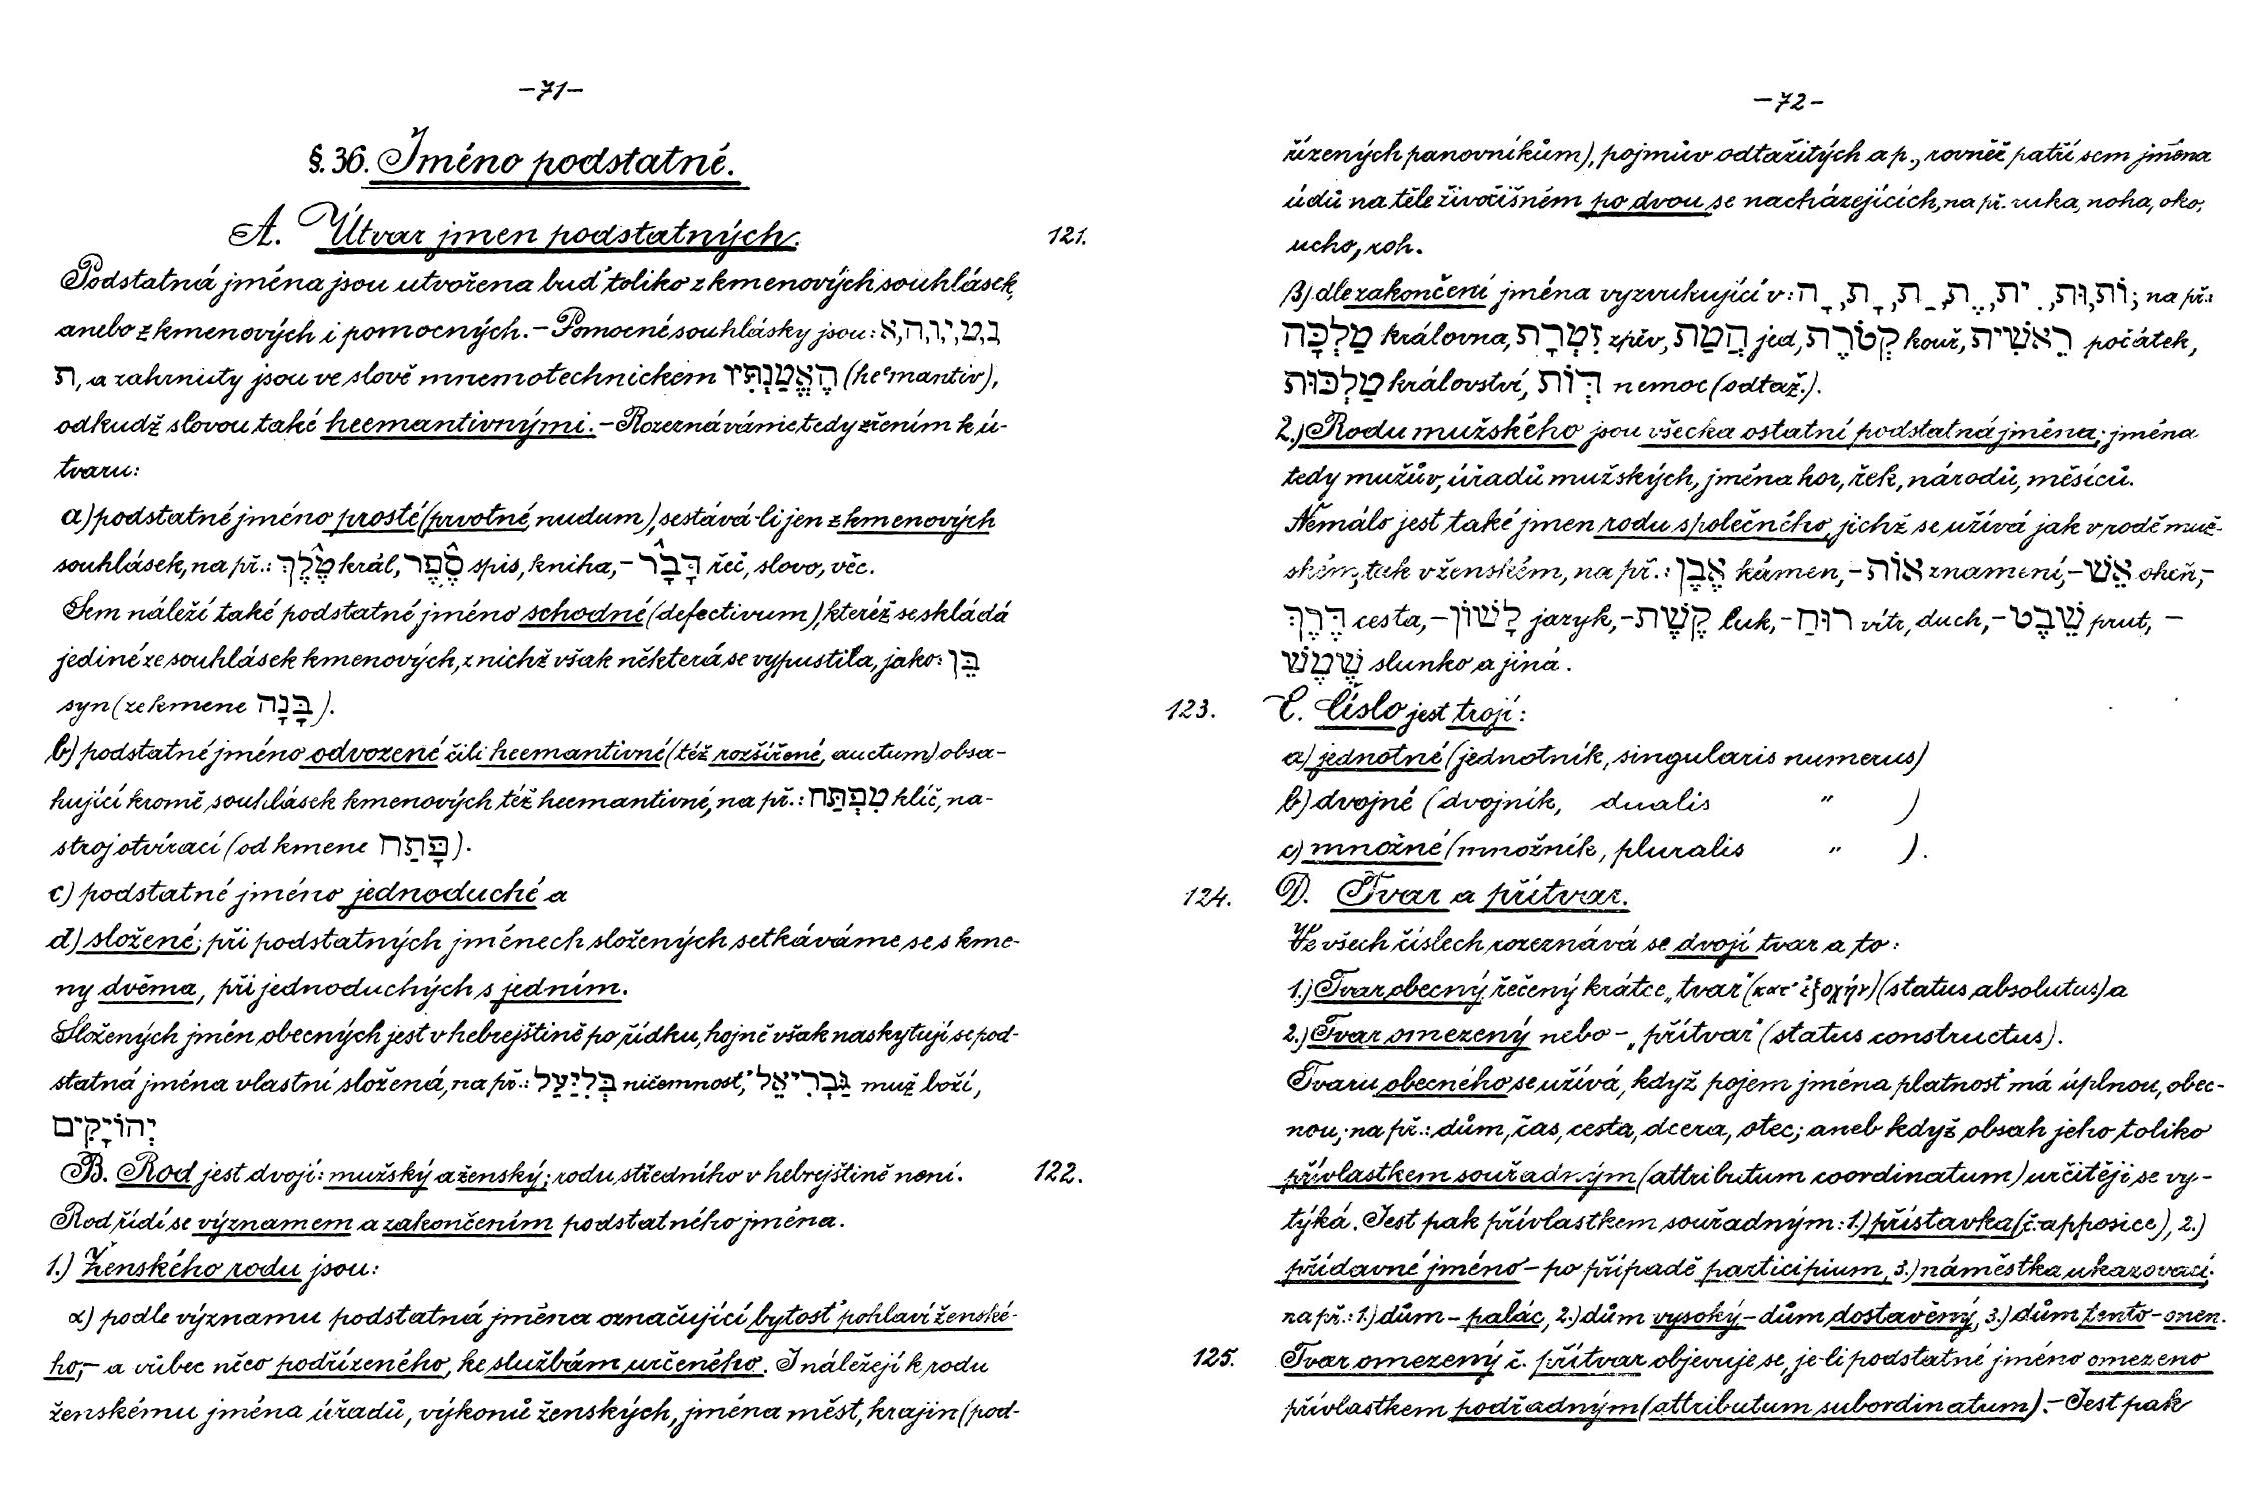 –71–
§. 36. Jméno podstatné.
A. Útvar jmen podstatných. 121.
Podstatná jména jsou utvořena buď toliko z kmenových souhlásek,
anebo z kmenových i pomocných. – Pomocné souhlásky jsou: א, ה, ו, י, מ, נ,
ת, a zahrnuty jsou ve slově mnemotechnickem הֶאֱמַנְתִּיו (heᵉmantiv),
odkudž slovou také heemantivnými. – Rozeznáváme tedy zřením k ú-
tvaru:
a) podstatné jméno prosté (prvotné, nudum), sestává-li jen z kmenových
souhlásek, na př.: מֶלֶךְ král, סֵפֶר spis, kniha, – דָּבָר řeč, slovo, věc.
Sem náleží také podstatné jméno schodné (defectivum), kteréž se skládá
jediné ze souhlásek kmenových, z nichž však některá se vypustila, jako: בֵּן
syn (ze kmene בָּנָה).
b) podstatné jméno odvozené čili heemantivné (též rozšířené, auctum) obsa-
hující kromě souhlásek kmenových též heemantivné, na př.: מִפְתַּח klíč, na-
stroj otvírací (od kmene פָּתַח).
c) podstatné jméno jednoduché a
d) složené; při podstatných jménech složených setkáváme se s kme-
ny dvěma, při jednoduchých s jedním.
Složených jmén obecných jest v hebrejštině po řídku, hojně však naskytují se pod-
statná jména vlastní složená, na př.: בְּלִיַּעַל ničemnost, גַּבְרִיאֵל muž boží,
יְהוֹיָקִים
B. Rod jest dvojí: mužský a ženský; rodu středního v hebrejštině není. 122.
Rod řídí se významem a zakončením podstatného jména.
1.) Ženského rodu jsou:
α) podle významu podstatná jména označující bytosť pohlaví ženské-
ho, – a vůbec něco podřízeného, ke službám určeného. I náležejí k rodu
ženskému jména úřadů, výkonů ženských, jména měst, krajin (pod-
–72–
řízených panovníkům), pojmův odtažitých a p., rovněž patří sem jména
údů na těle živočišném po dvou se nacházejících, na př. ruka, noha, oko,
ucho, roh.
β) dle zakončení jména vyzvukující v: ָה, ָת, ַת, ֶת, ִית, וּת, וֹת; na př.:
מַלְכָּה královna, זִמְרָת zpěv, חֲמַת jed, קְטֹרֶת kouř, רֵאשִׁית počátek,
מַלְכוּת království, דְּוֹת nemoc (odtaž.).
2.) Rodu mužského jsou všecka ostatní podstatná jména; jména
tedy mužův, úřadů mužských, jména hor, řek, národů, měsíců.
Nemálo jest také jmen rodu společného, jichž se užívá jak v rodě muž-
ském, tak v ženském, na př.: אֶבֶן kámen, – אוֹת znamení, – אֵשׁ oheň, –
דֶּרֶךְ cesta, – לָשׁוֹן jazyk, – קֶשֶׁת luk, – רוּחַ vítr, duch, – שֵׁבֶט prut, –
שֶׁמֶשׁ slunko a jiná.
123. C. Číslo jest trojí:
a) jednotné (jednotník, singularis numerus)
b) dvojné (dvojník, dualis " )
c) množné (množník, pluralis " ).
124. D. Tvar a přítvar.
Ve všech číslech rozeznává se dvojí tvar a to:
1.) Tvar obecný řečený krátce „tvar" (κατ' ἐξοχήν) (status absolutus) a
2.) Tvar omezený nebo – „přítvar" (status constructus).
Tvaru obecného se užívá, když pojem jména platnosť má úplnou, obec-
nou; na př.: dům, čas, cesta, dcera, otec; aneb když obsah jeho toliko
přívlastkem souřadným (attributum coordinatum) určitěji se vy-
týká. Jest pak přívlastkem souřadným: 1.) přístavka (č. apposice), 2.)
přídavné jméno – po případě participium, 3.) náměstka ukazovací;
na př.: 1.) dům – palác, 2.) dům vysoký – dům dostavěný, 3.) dům tento – onen.
125. Tvar omezený č. přítvar objevuje se, je-li podstatné jméno omezeno
přívlastkem podřadným (attributum subordinatum). – Jest pak